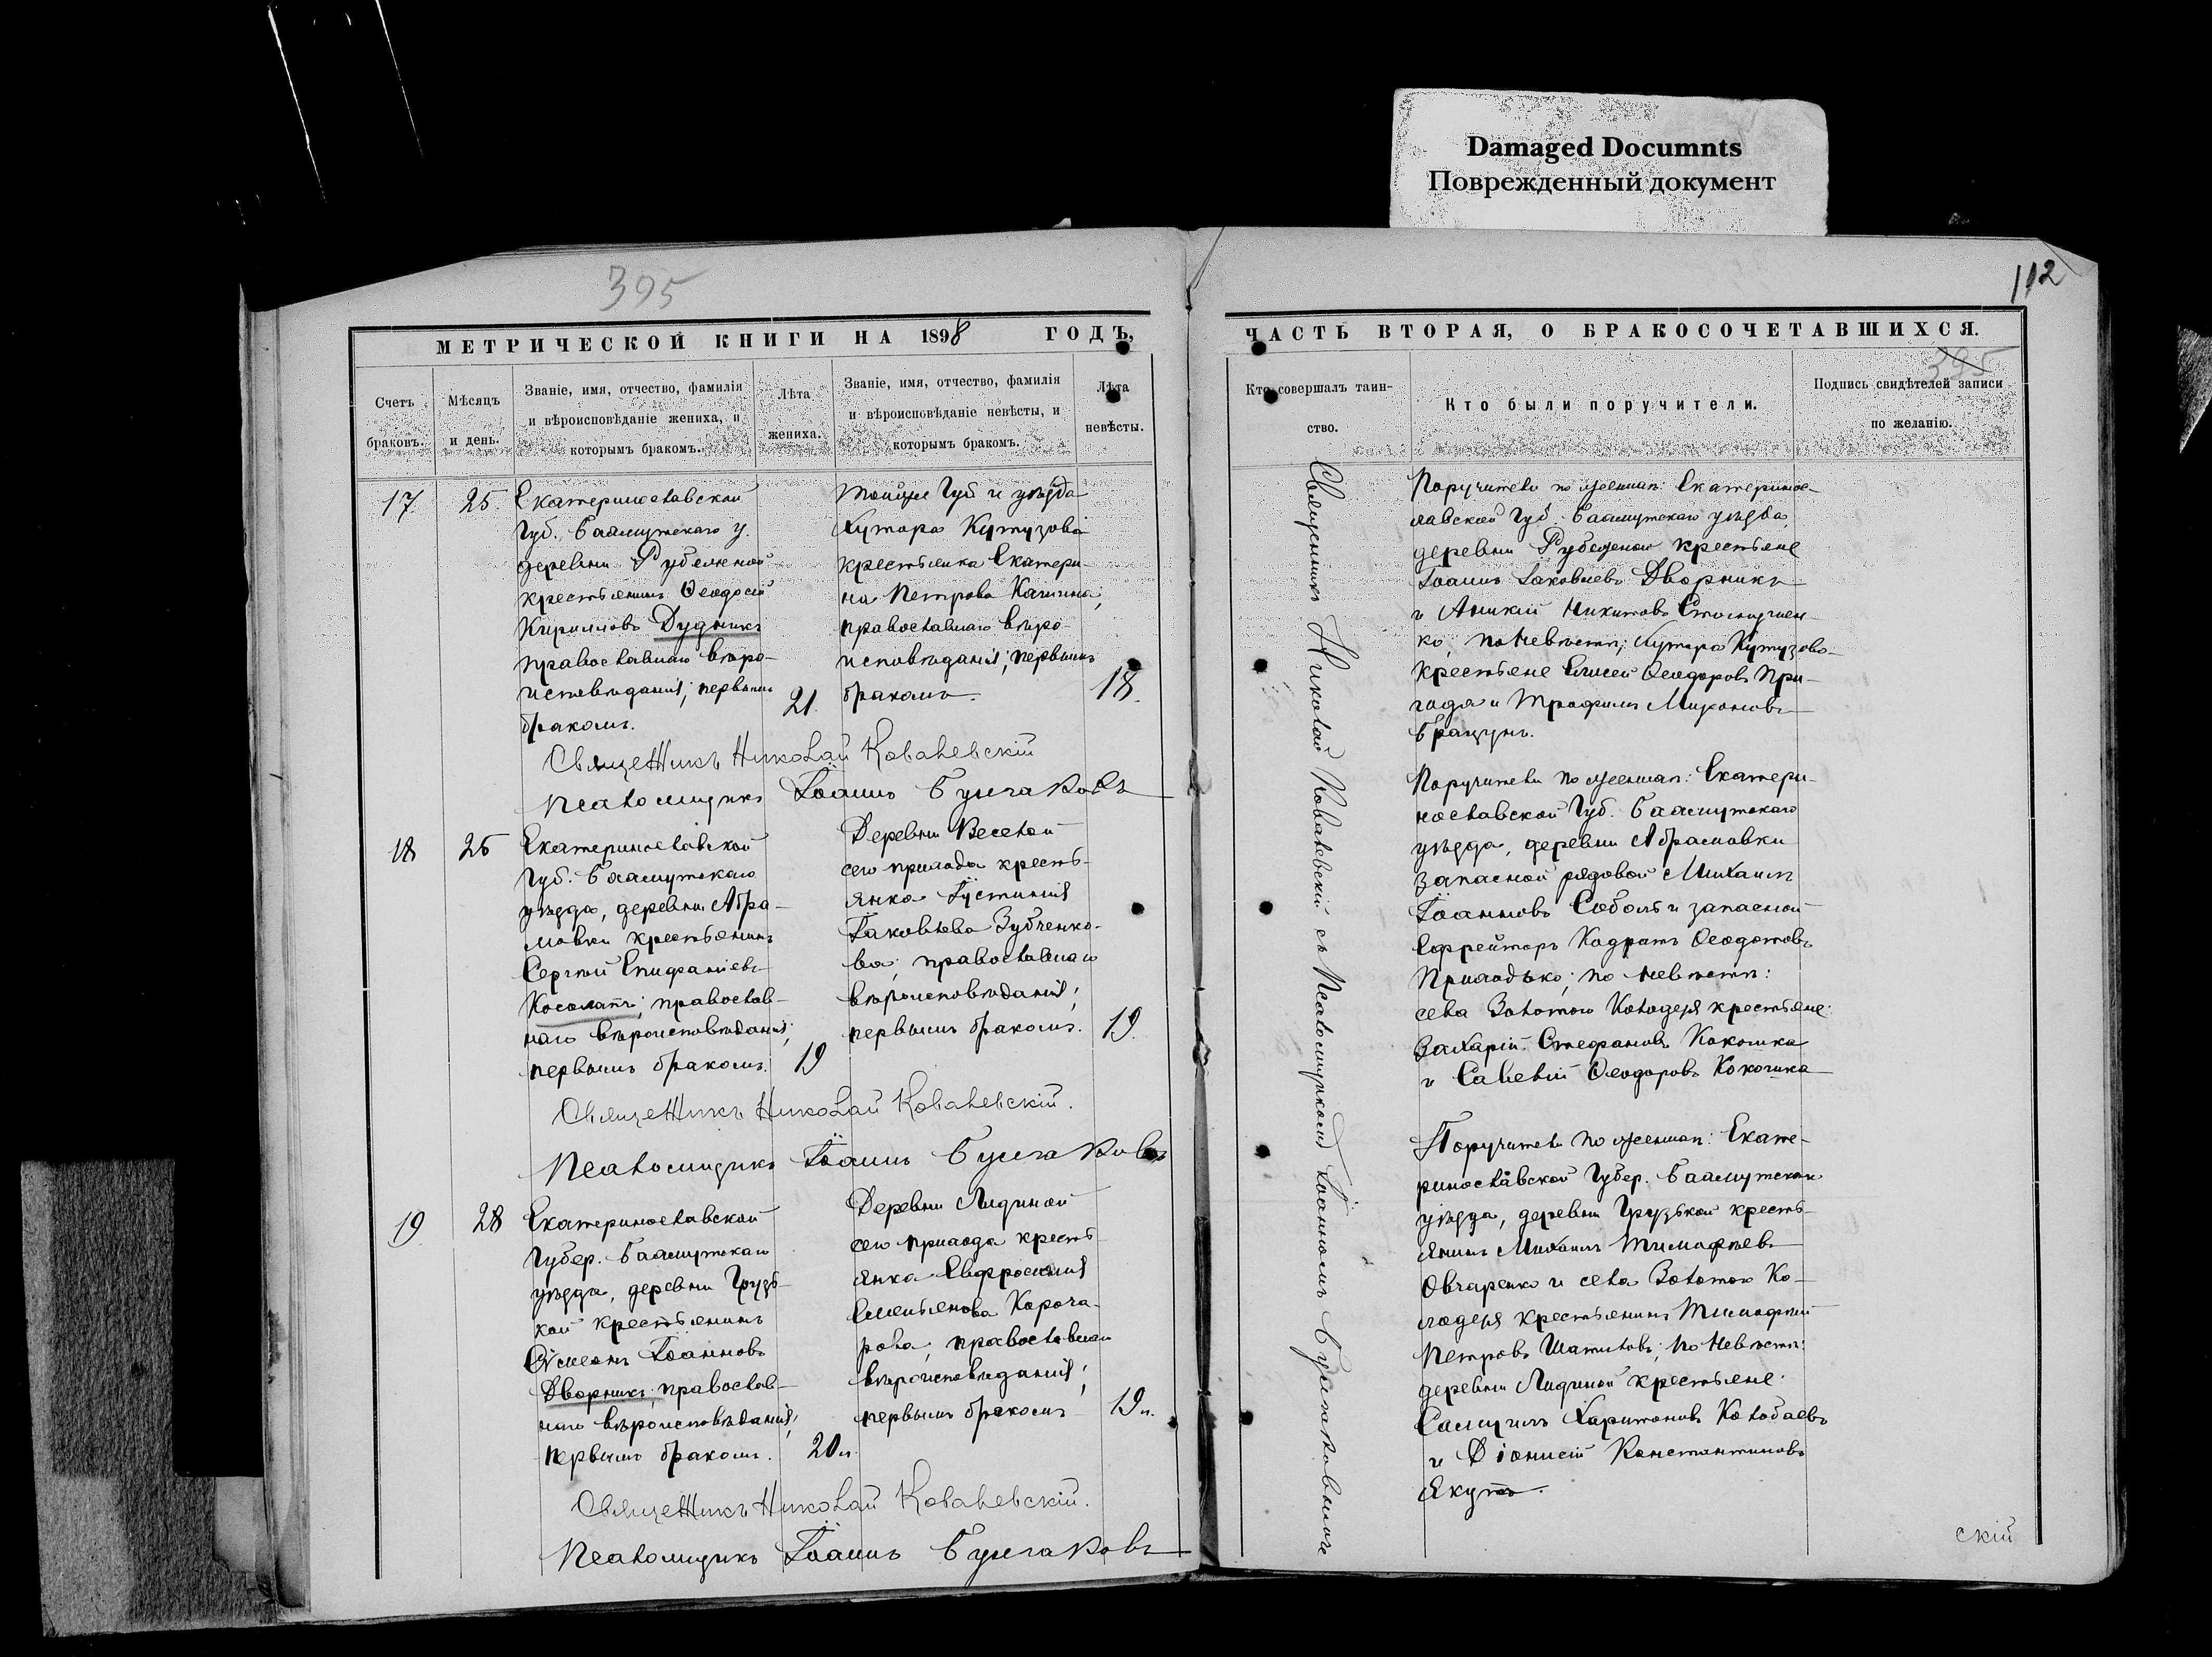 Damaged Documnts
Поврежденный документ
395
МЕТРИЧЕСКОЙ КНИГИ НА 1898 ГОДЪ,
Счетъ браковъ.
Мѣсяцъ и день.
Званіе, имя, отчество, фамилія
и вѣроисповѣданіе жениха, и
которымъ бракомъ.
Лѣта
жениха.
Званіе, имя, отчество, фамилія
и вѣроисповѣданіе невѣсты, и
которымъ бракомъ.
Лѣта
невѣсты.
17
25.
Екатеринославской
Губ. Бахмутскаго у.
деревни Рубежной
крестьянинъ Ѳеодосій
Кирилловъ Дудникъ
православнаго вѣро-
исповѣданія; первымъ
бракомъ.
21.
Тойже Губ и уѣзда
Хутора Кутузова
крестьянка Екатери-
на Петрова
православнаго вѣро-
исповѣданія; первымъ
бракомъ.
18.
Священникъ Николай Ковалевскій
Псаломщикъ Іоаннъ Булгаковъ
18
25
Екатеринославской
Губ. Бахмутскаго
уѣзда, деревни Абра-
мовки крестьянинъ
Сергѣй Епифаніевъ
Косолапъ; православ-
наго вѣроисповѣданія;
первымъ бракомъ.
19
Деревни Веселой
сего прихода кресть-
янка Іустинія
Іаковлева Зубченко-
ва; православнаго
вѣроисповѣданія;
первымъ бракомъ.
19.
Священникъ Николай Ковалевскій.
Псаломщикъ Іоаннъ Булгаковъ
19
28
Екатеринославской
Губер. Бахмутскаго
уѣзда, деревни Грузь-
кой крестьянинъ
Сѵмеонъ Іоанновъ
Дворникъ; православ-
наго вѣроисповѣданія;
первымъ бракомъ.
20 л.
Деревни Лидиной
сего прихода кресть-
янка Евфросинія
Емельянова Короча-
рова; православнаго
вѣроисповѣданія;
первымъ бракомъ
19 л.
Священникъ Николай Ковалевскій.
Псаломщикъ Іоаннъ Булгаковъ
112
ЧАСТЬ ВТОРАЯ, О БРАКОСОЧЕТАВШИХСЯ.
395
Кто совершалъ таин-
ство.
Кто были поручители.
Подпись свидѣтелей записи
по желанію.
Священникъ Николай Ковалевскій съ Псаломщикомъ Іоанномъ Булгаковымъ
Поручители по женихѣ: Екатеринос-
лавской Губ. Бахмутскаго уѣзда,
деревни Рубежной крестьяне
Іоаннъ Іаковлевъ Дворникъ
и Аникій Никитовъ
ко; по невѣстѣ; Хутора Кутузова
крестьяне Елисей Ѳеодоровъ При-
года и Трофимъ
Поручители по женихѣ: Екатери-
нославской Губ. Бахмутскаго
уѣзда, деревни Абрамовки
запасной рядовой Михаилъ
Іоанновъ Соболь и запасной
Ефрейторъ Кодратъ Ѳеодотовъ
Приходько; по невѣстѣ:
села Золотого Колодезя крестьяне:
Захарій Стефановъ Кокошка
и Савелій Ѳеодоровъ Кокошка
Поручители по женихѣ: Екате-
ринославской Губер. Бахмутскаго
уѣзда, деревни Грузькой кресть-
янинъ Михаилъ Тимофѣевъ
Овчаренко и села Золотого Ко-
лодезя крестьянинъ Тимофей
Петровъ Шатиловъ; по невѣстѣ:
деревни Лидиной крестьяне:
Самуилъ Харитоновъ Колобаевъ
и Діонисій Константиновъ
Якутъ.
скій